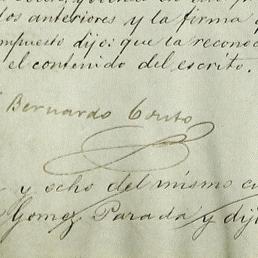 los anteriores y la firma
mpuesto dijo: que la reconoc
el contenido del escrito.
Bernardo Couto
y ocho del mismo
Gomez Parada y dij